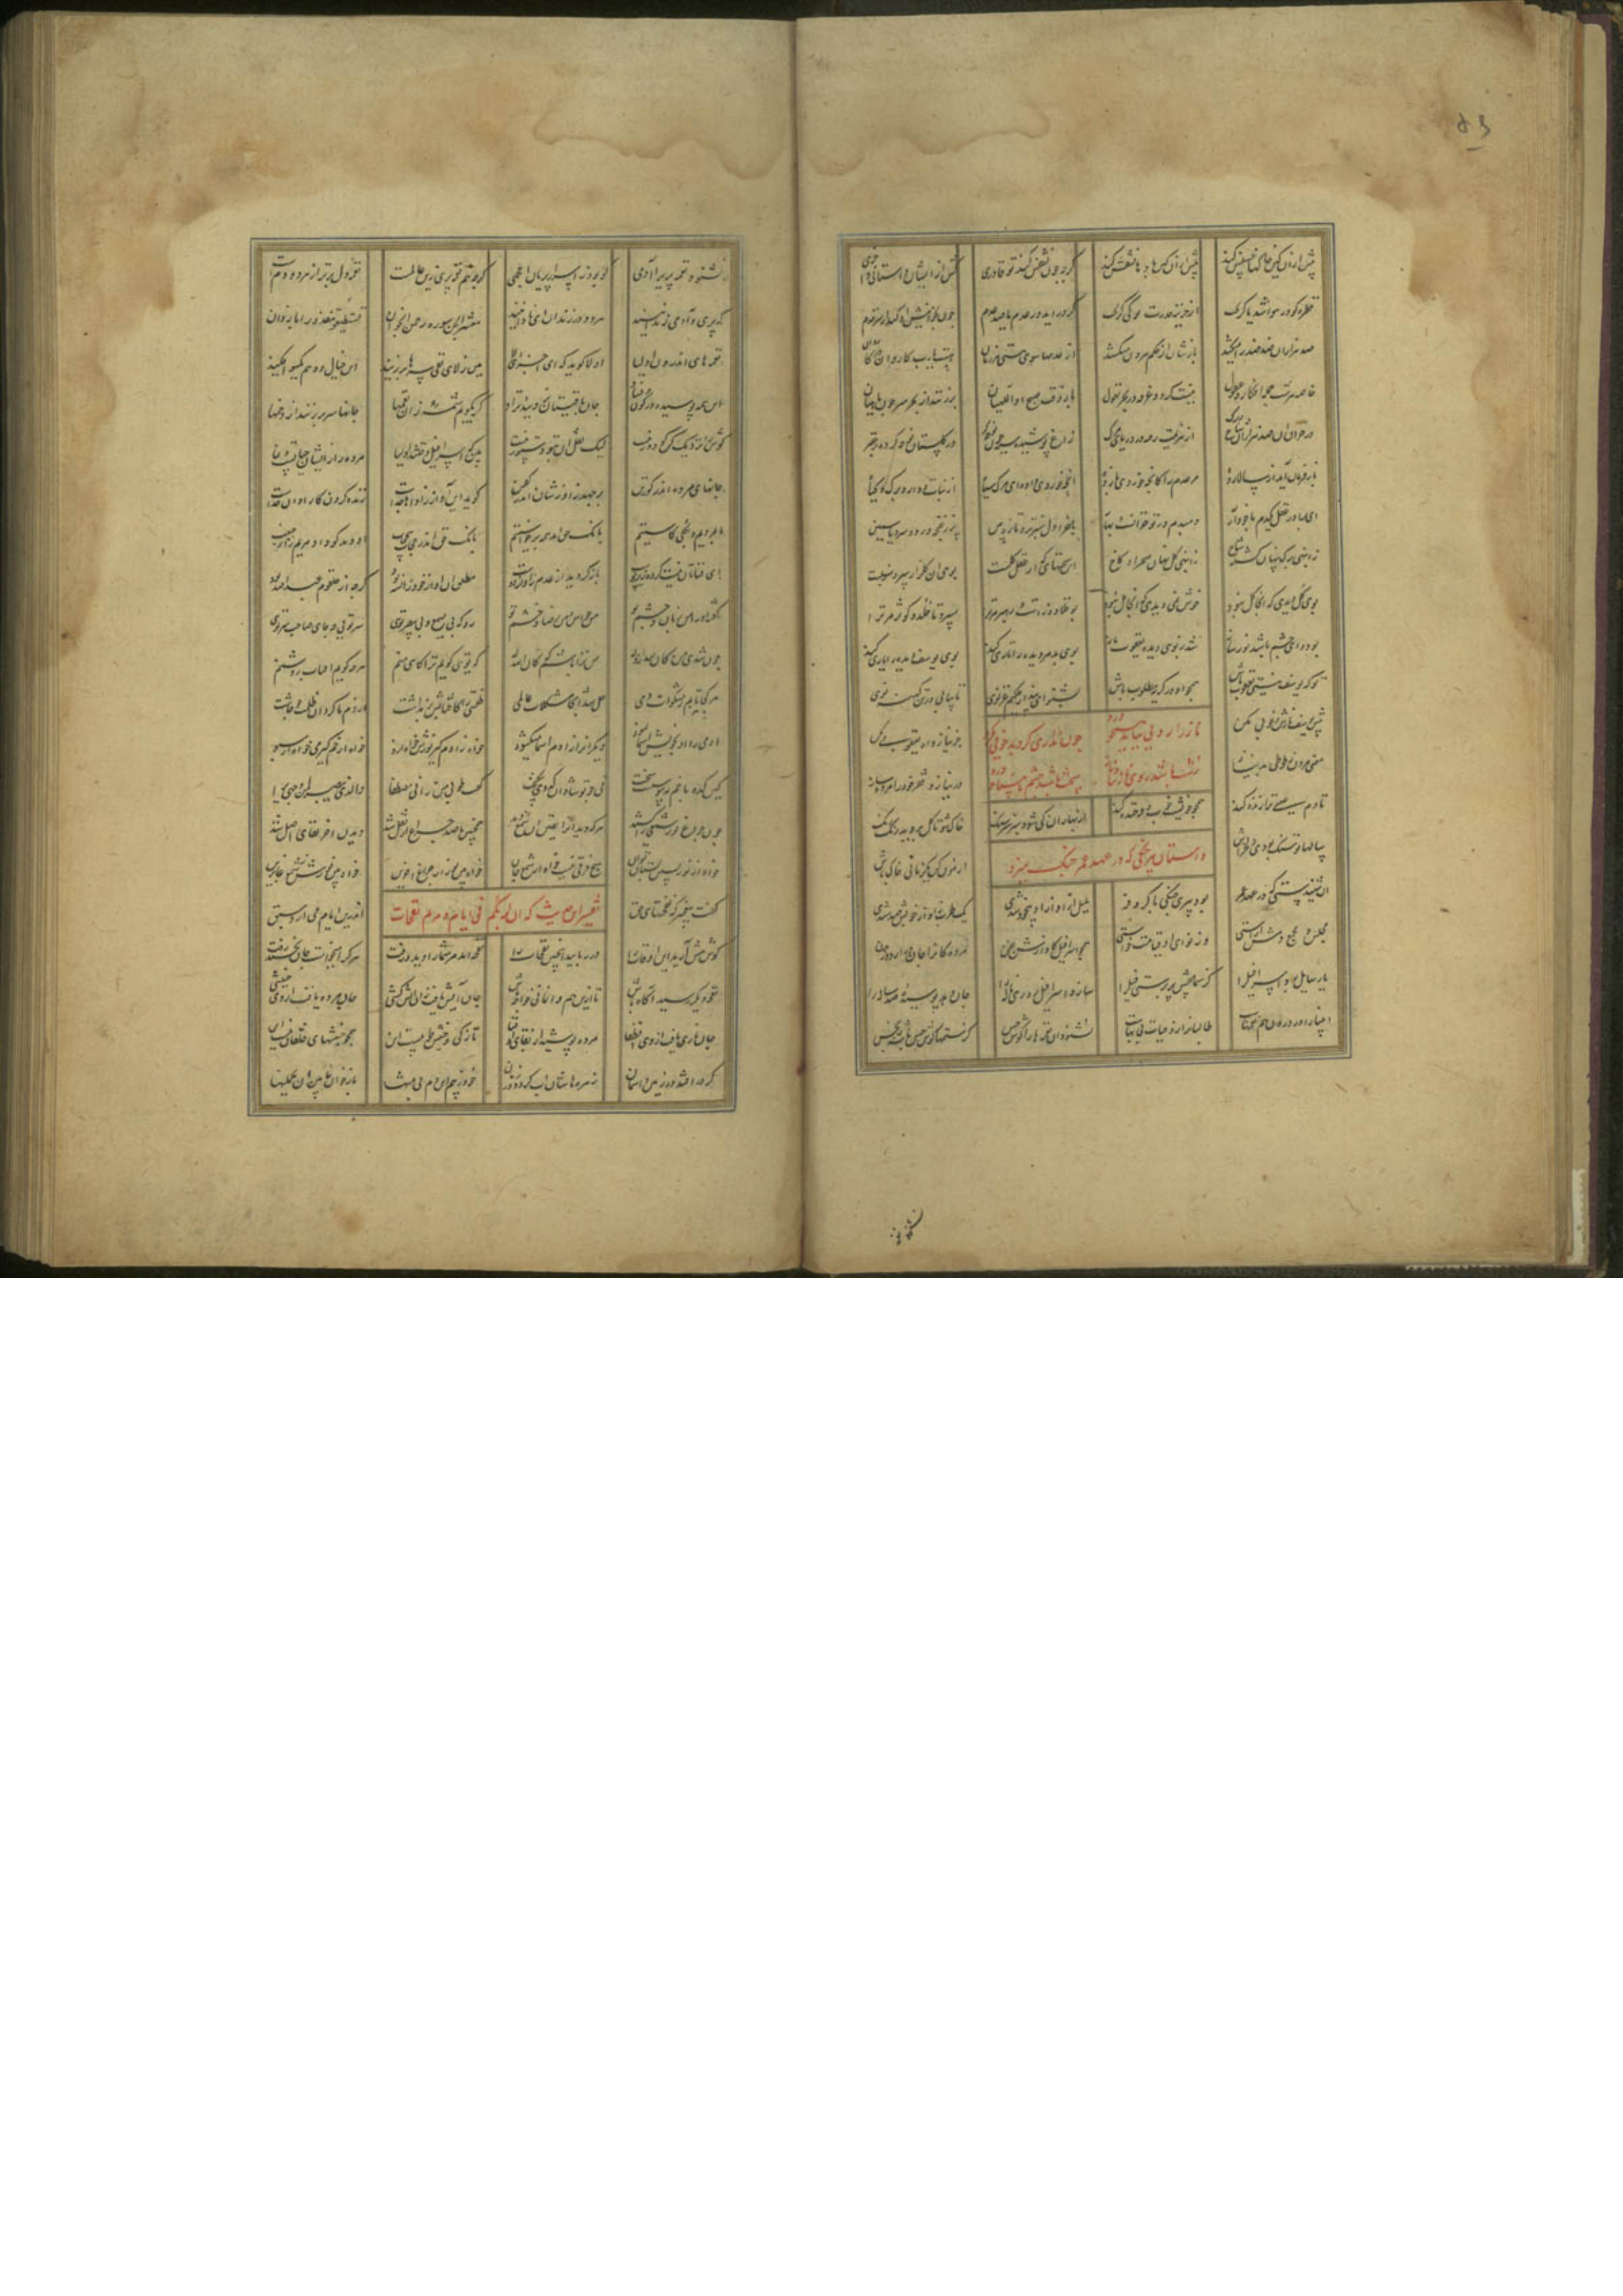 ۵۳
پیش از ان کین خاکها خسفش کنند پیش از ان کین بادها نشفش کنند گرچه چون نشفش کند تو قادری کش از ایشان واستانی واخری
قطره کو در هوا شد یا که ریخت از خزینه قدرت تو کی گریخت گر در اید در عدم یا صد عدم چون بخوانیش او کند از سر قدم
صد هزاران ضد ضد را میکشد بازشان از حکم بیرون میکشد از عدمها سوی هستی هر زمان هست یا رب کاروان در کاروان
خاصه هر شب جمله افکار و عقول نیست گردد غرقه در بحر نغول باز وقت صبح او اللهیان برزنند از بحر سر چون ماهیان
در خزان ان صد هزاران شاخ و برگ از هزیمت رفته در دریای مرگ زاغ پوشیده سیه چون نوحه گر در گلستان نوحه کرده بر خضر
باز فرمان آید از سالار ده مر عدم را کانچه خوردی باز ده انچه خوردی واده ای مرگ سیاه از نبات و دارو و برگ و گیاه
ای برادر عقل یکدم با خود آر دمبدم در تو خزانست و بهار باغ دل سبز و تر و تازه بین پر ز غنچه ورد و سرو و یاسمین
ز انبهی برگ پنهان گشته شاخ ز انبهی گل نهان صحرا و کاخ این سخنهائی که از عقل کلست بوی ان گلزار و سرو و سنبلست
بوی گل دیدی که انجا گل نبود جوش مل دیدی که انجا مل نبود بو قلاوزست و رهبر مر ترا میبرد تا خلد و کوثر مر ترا
بو دوای چشم باشد نورساز شد ز بوی دیده یعقوب باز بوی بد مر دیده را تاری کند بوی یوسف دیده را یاری کند
تو که یوسف نیستی یعقوب باش همچو او در گریه مطلوب باش بشنو این پند از حکیم غزنوی تا بیابی در تن کهنه نوی
ناز را رویی بباید همچو ورد چون نداری گرد بدخویی مگرد
زشت باشد روی نازیبا و ناز سخت باشد چشم نابینا و درد
پیش یوسف نازش و خوبی مکن جز نیاز و اه یعقوبی مکن
معنی مردن ز طوطی بد نیاز در نیاز و فقر خود را مرده ساز
تا دم عیسی ترا زنده کند همچو خویشت خوب و فرخنده کند از بهاران کی شود سرسبز سنگ خاک شو تا گل بروید رنگ رنگ
سالها تو سنگ بودی دلخراش ازمون کن یکزمانی خاک باش
داستان پیر چنگی که در عهد عمر چنگ میزد
ان شنیدستی که در عهد عمر بود پیری چنگی با کر و فر بلبل از آواز او بیخود شدی یک طرب ز آواز خوبش صد شدی
مجلس و مجمع دمش اراستی وز نوای او قیامت خاستی همچو اسرافیل کاوازش بفن مرده کانرا جان دراردر بدن
یا رسایل بود اسرافیل را کز سماعش پر برستی فیل را سازد اسرافیل روزی ناله را جان دهد پوسیده صد ساله را
انبیا را در درون هم نغمهاست طالبانرا زو حیات بی بهاست نشنود ان نغمه ها را گوش حس کز ستمها گوش حس باشد نجس
نشنود
نشنود نغمه پری را آدمی کو بود ز اسرار پریان اعجمی گرچه هم نغمه پری زین عالمست نغمه دل برتر از هر دو دمست
که پری و آدمی زندانیند هر دو در زندان این نادانیند معشر الجن سوره رحمن بخوان تستطیعوا تنفذوا را باز دان
نغمه های اندرون اولیا اولا گوید که ای اجزای لا هین ز لای نفی سرها برزنید این خیال و وهم یکسو افکنید
ای همه پوسیده در کون و فساد جان باقیتان نروئید و نزاد گر بگویم شمه زان نغمها جانها سر برزنند از دخمها
گوش را نزدیک کن کان دور نیست لیک نقل ان بتو دستور نیست هین که اسرافیل وقتند اولیا مرده را زیشان حیاتست و نما
جانهای مرده اندر گور تن برجهد ز اوازشان اندر کفن گوید این آواز ز آوازها جداست زنده کردن کار اواز خداست
ما بمردیم و بکلی کاستیم بانک حق امد همه برخواستیم بانک حق اندر حجاب و بی حجیب آن دهد کو داد مریم را ز جیب
ای فناتان نیست کرده زیر پوست باز گردید از عدم ز آواز دوست مطلق ان اواز خود از شه بود گرچه از حلقوم عبدالله بود
گفته او را من زبان و چشم تو من حواس و من رضا و خشم تو رو که بی یسمع و بی یبصر توی سر توی چه جای صاحب سر توی
چون شدی من کان لله از وله من ترا باشم که کان الله له گه توی گویم ترا گاهی منم هرچه گویم افتاب روشنم
هر کجا تابم ز مشکات دمی حل شد آنجا مشکلات عالمی ظلمتی را کافتابش برنداشت از دم ما گردد ان ظلمت چو چاشت
ادمی را او بخویش اسما نمود دیگرانرا ز ادم اسما میگشود خواه ز ادم گیر نورش خواه ازو خواه از خم گیر می خواه از سبو
کین کدو با خم بپیوست سخت نی چو تو شادان کدوی نیکبخت گفت طوبی من رانی مصطفا والذی یبصر لمن وجهی یرا
چون چراغی نور شمعی را کشید هر که دید آنرا یقین ان شمع دید همچنین تا صد چراغ ار نقل شد دیدن اخر لقای اصل شد
خواه از نور پسین بستان بجان هیچ فرقی نیست خواه از شمع جان خواه بین نور از چراغ اخرین خواه بین نورش ز شمع غابرین
تفسیر این حدیث که ان لربکم فی ایام دهرکم نفحات
گفت پیغمبر که نفحتهای حق اندرین ایام می ارد سبق
گوش هش آرید این اوقات را در ربایید اینچنین نفحات را نفحه امد مر شما را دید و رفت هر که را میخواست جان بخشید و رفت
نفحه دیگر رسید اگاه باش تا ازین هم وا نمانی خواجه تاش جان آتش یافت زو اتش کشی جان مرده یافت از وی جنبشی
جان ناری یافت از وی انطفا مرده پوشید از بقای او قبا تازگی و جنبش طوبیست این همچو جنبشهای خلقان نیست این
گر در افتد در زمین و اسمان زهره هاشان اب گردد در زمان خود ز بیم این دم بی منتها باز خوان فابین ان یحملنها